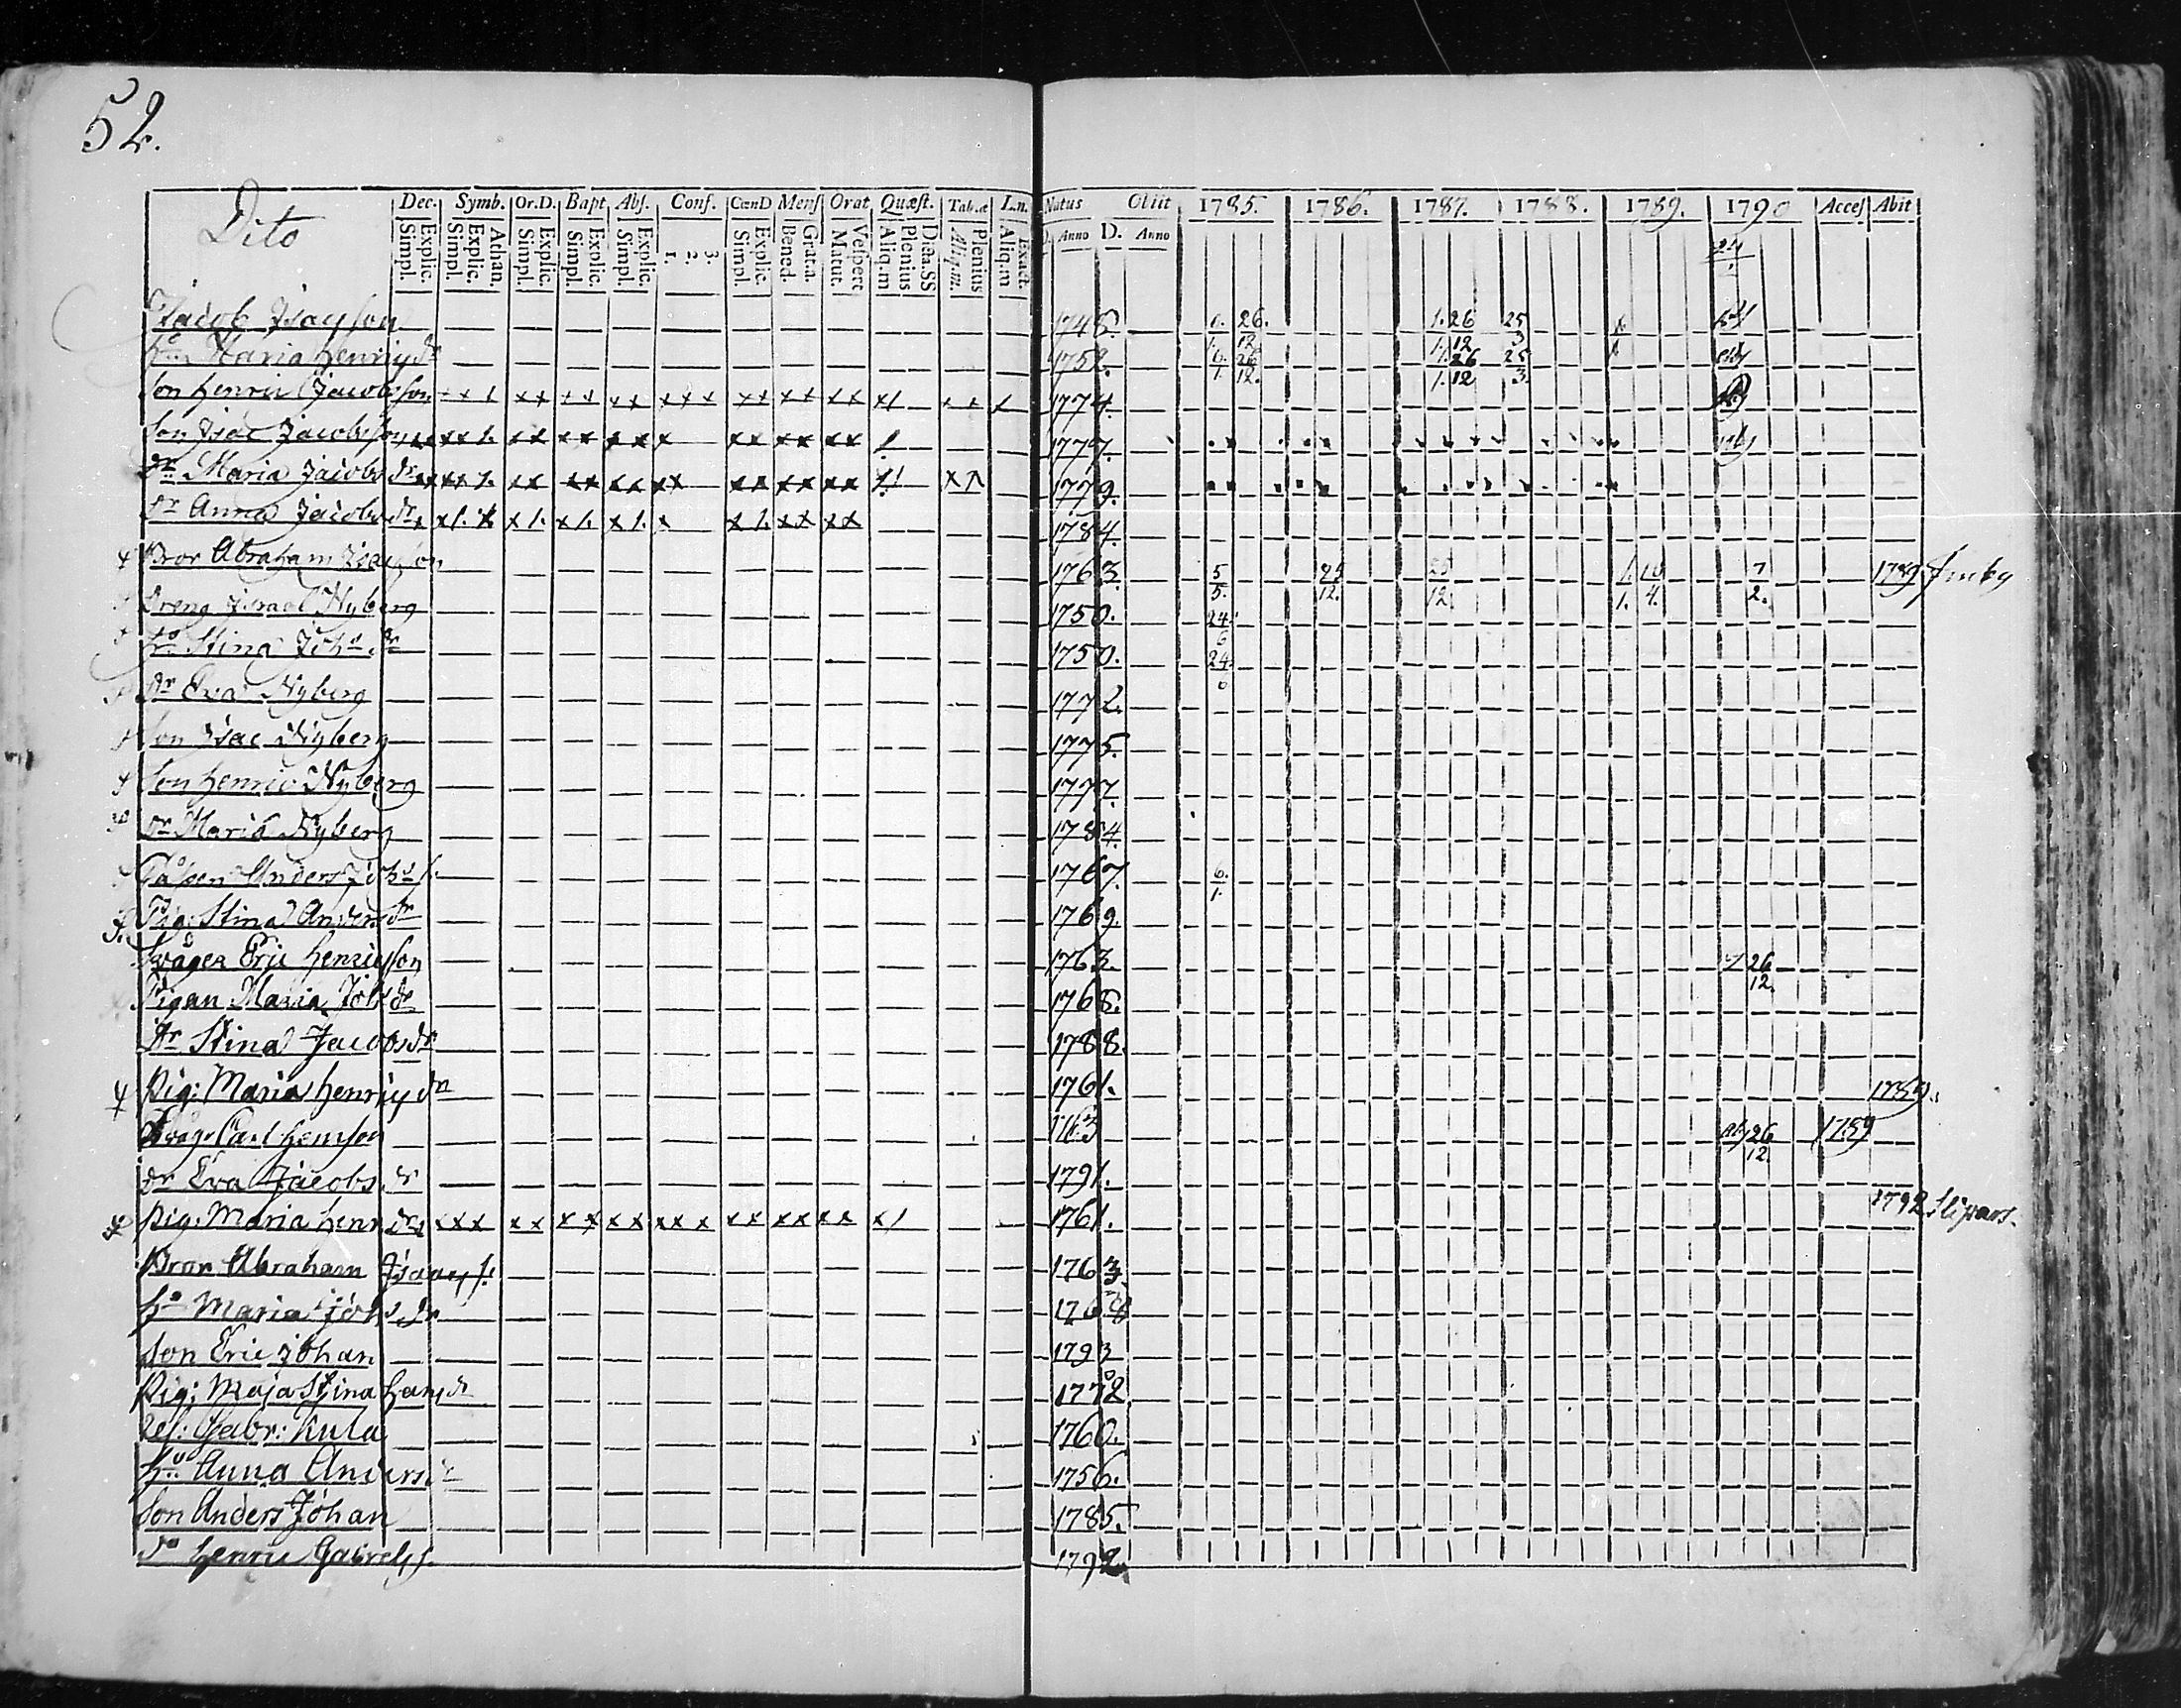 52.
Dito Dec. Symb. Or.D. Bapt Abs. Conf. CœnD Mens Orat Quæst. Tab.æ L.n. Natus Obiit 1785. 1786. 1787. 1788. 1789. 1790 Acces Abit
Explic. Simpl. Athan. Explic. Simpl. Explic. Simpl. Explic. Simpl. Explic. Simpl. 3. 2. 1. Explic. Simpl. Grat.a. Bened. Vespert Matur. Dicta.SS Plenius Aliq.m Plenius Aliq.m. Exact. Aliq.m D. Anno D. Anno
Jacob Isacsson 1748. 26. 12 1.26 1.12 25 3
hu Maria Henricsdr 1752. 6. 26 1. 12. 1.26 1.12 25 3.
Son Henric Jacobsson 1774.
Son Isac Jacobsson 1777.
Dr Maria Jacobsdr 1779.
dr Anna Jacobsdr 1784.
Bror Abraham Isacsson 1763. 5 5. 25 12. 25 12. 1. 4. 7 2. 1789
Dreng Israel Nyberg 1750. 24. 6
hu Stina Johsdr 1750. 24. 6
dr Eva Nyberg 1772.
Son Isac Nyberg 1775.
Son Henric Nyberg 1777.
dr Maria Nyberg 1784.
Gåssen Anders Johss. 1767. 6. 1.
Pig: Stina Andersdr 1769.
Swåger Eric Henricsson 1763. 26 12.
Pigan Maria Johsdr 1768.
dr Stina Jacobsdr 1788.
Pig: Maria Henricsdr 1761. 1789.
Swåg. Carl Hemsson 1763 26 12. 1789
dr Eva Jacobsdr 1791.
Pig: Maria Henr dr 1761. 1792
Bror Abraham Isacss. 1763.
hu Maria Johsdr 1768
Son Eric Johan 1793
Pig: Maja Stina 1772
Gabr: Kula 1760.
hu Anna Andersdr 1756.
Son Anders Johan 1785.
do Henric Gabrelss. 1792.